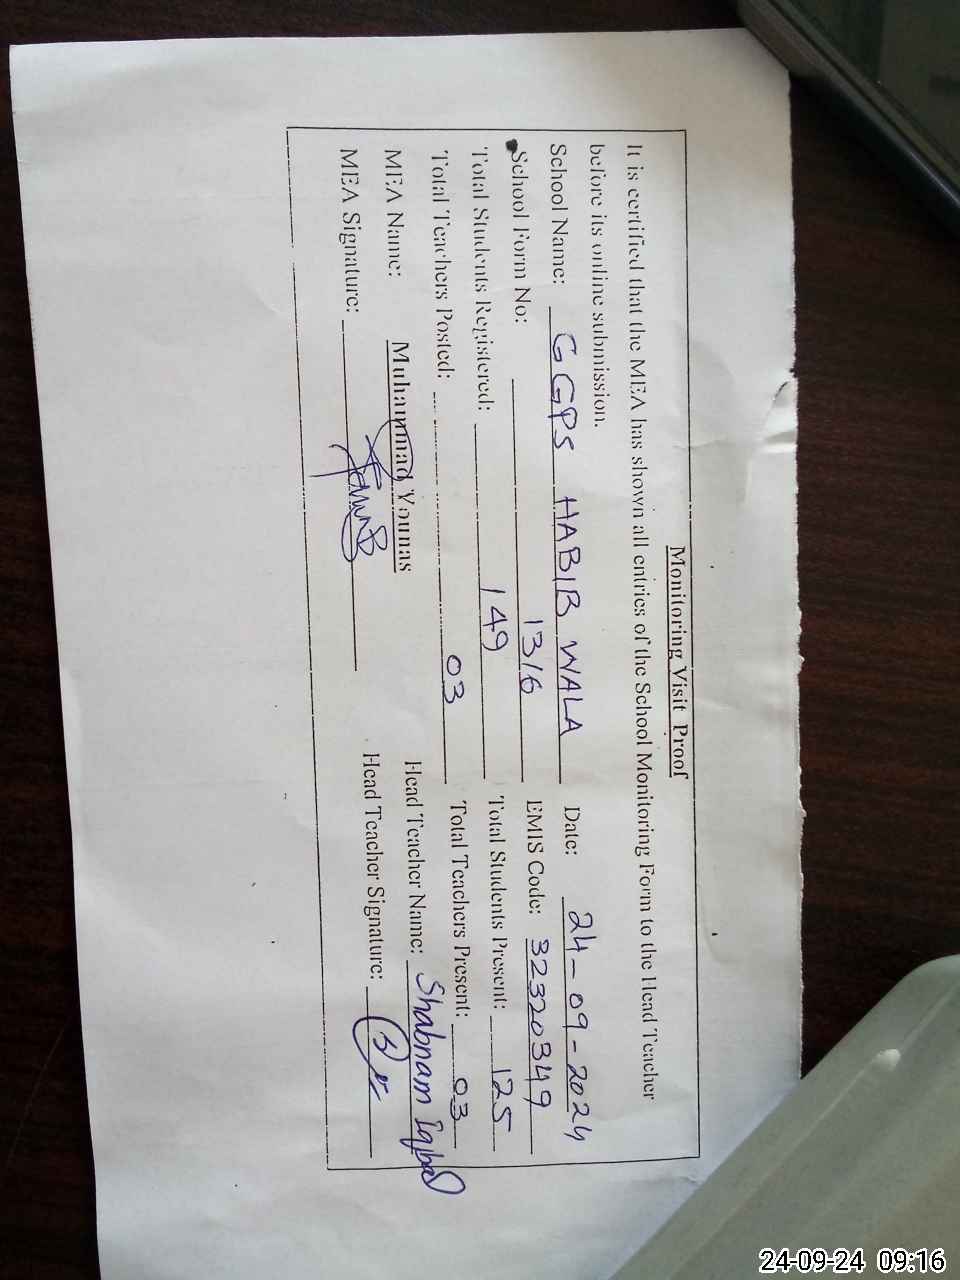 Monitoring Visit Proof
It is certified that the MEA has shown all entries of the School Monitoring Form to the Head Teacher
before its online submission.
School Name: GGPS HABIB WALA Date: 24-09-2024
School Form No: 1316 EMIS Code: 32320349
Total Students Registered: 149 Total Students Present: 125
Total Teachers Posted: 03 Total Teachers Present: 03
MEA Name: Muhammad Younas Head Teacher Name: Shabnam Iqbal
MEA Signature: Head Teacher Signature:
24-09-24 09:16